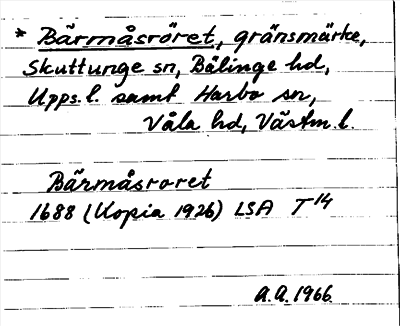 * Bärmåsröret, gränsmärke,
Skuttunge sn, Bälinge hd,
Upps. l. samt Harbo sn,
Våla hd, Västm. l.
Bärmåsroret
1688 (Kopia 1926) LSA T 14
A.A. 1966